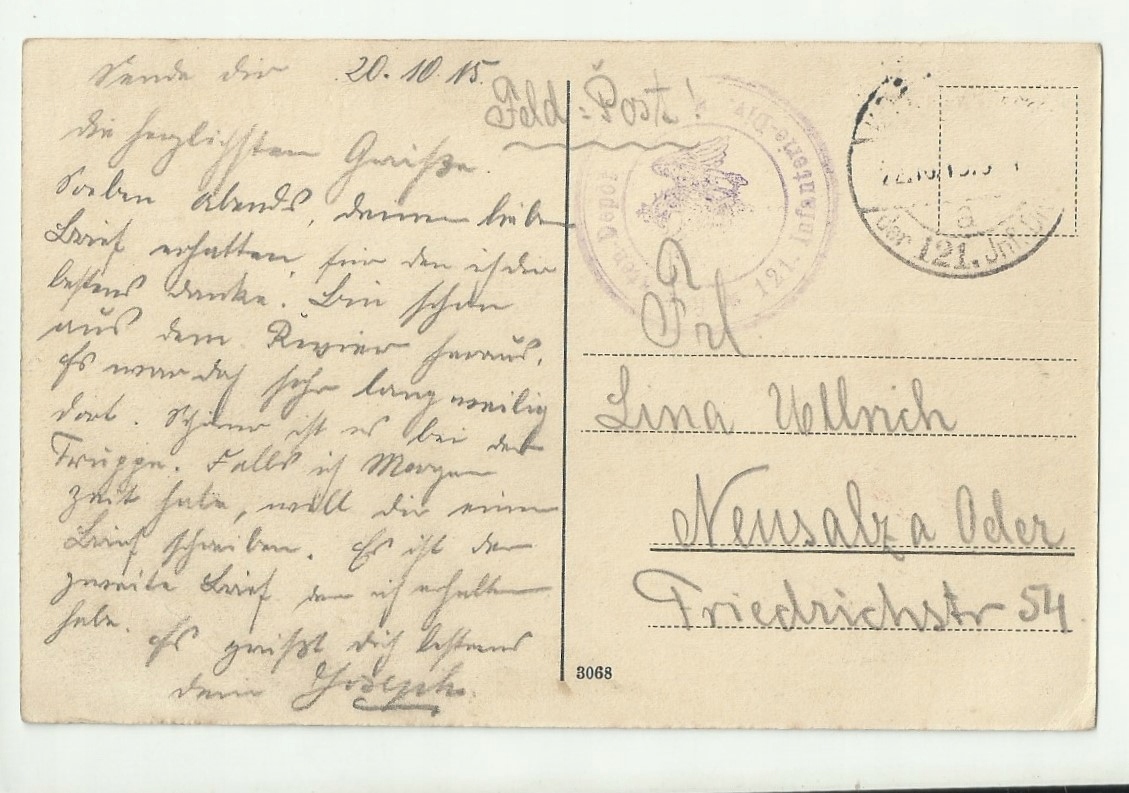 Sende dir 20.10.15.
die herzlichsten Grüße.
Soeben Abends, deinen lieben
Brief erhalten, für den ich dir
bestens danke. Bin schon
aus dem Revier heraus.
Es war doch sehr langweilig
dort. Schöner ist es bei der
Truppe. Falls ich Morgen
zeit habe, will dir einen
Brief schreiben. Es ist der
zweite Brief den ich erhalten
habe.
Es grüßt dich bestens
dein Joseph.
Feld-Post!
Frl
Lina Ullrich
Neusalz a Oder
Friedrichstr 54
3068
Depot 121. Infanterie-Div
der 121. Inf.
a